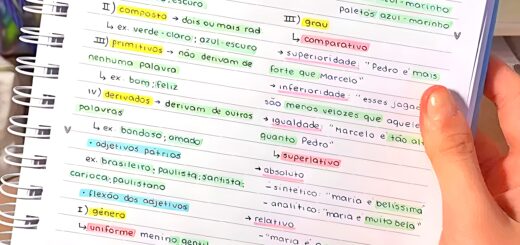 escuro
II) composto → dois ou mais rad
↳ ex. verde-claro; azul-escuro
III) primitivos → não derivam de
nenhuma palavra
↳ ex bom; feliz
IV) derivados → derivam de outras
palavras
↳ ex bondoso; amado
• adjetivos pátrios
ex. brasileiro; paulista; santista;
carioca; paulistano
• flexão dos adjetivos
I) gênero
↳ uniforme menino gentil
azul-marinho
paletós azul-marinho
III) grau
↳ comparativo
→ superioridade: "Pedro é mais
forte que Marcelo"
→ inferioridade: "esses jogad
são menos velozes que aquele
→ igualdade: "Marcelo é tão al
quanto Pedro"
↳ superlativo
→ absoluto
- sintético: "maria é belíssima"
- analítico: "maria é muito bela"
→ relativo
- "maria é